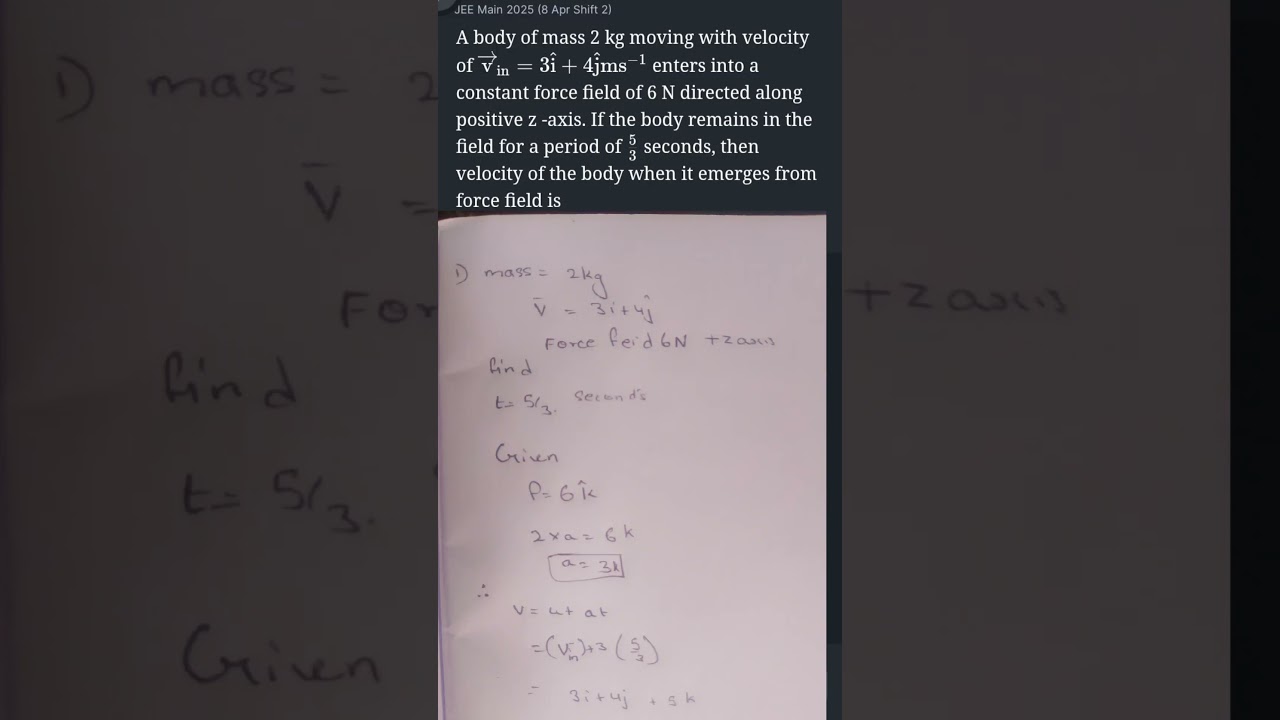 JEE Main 2025 (8 Apr Shift 2)
A body of mass 2 kg moving with velocity
of \(\overrightarrow{v}_{in}\) = 3î + 4ĵms⁻¹ enters into a
constant force field of 6 N directed along
positive z -axis. If the body remains in the
field for a period of 5/3 seconds, then
velocity of the body when it emerges from
force field is
1) mass = 2kg
V̄ = 3i+4ĵ
Force feid 6N +z axis
find
t= 5/3. seconds
Given
f= 6k̂
2×a = 6k
a = 3k
∴
V = u+ at
=(V̄in)+3(5/3)
= 3i+4j + 5k
1) mass = 2
V̄ =
For
+z axis
find
t= 5/3.
Given